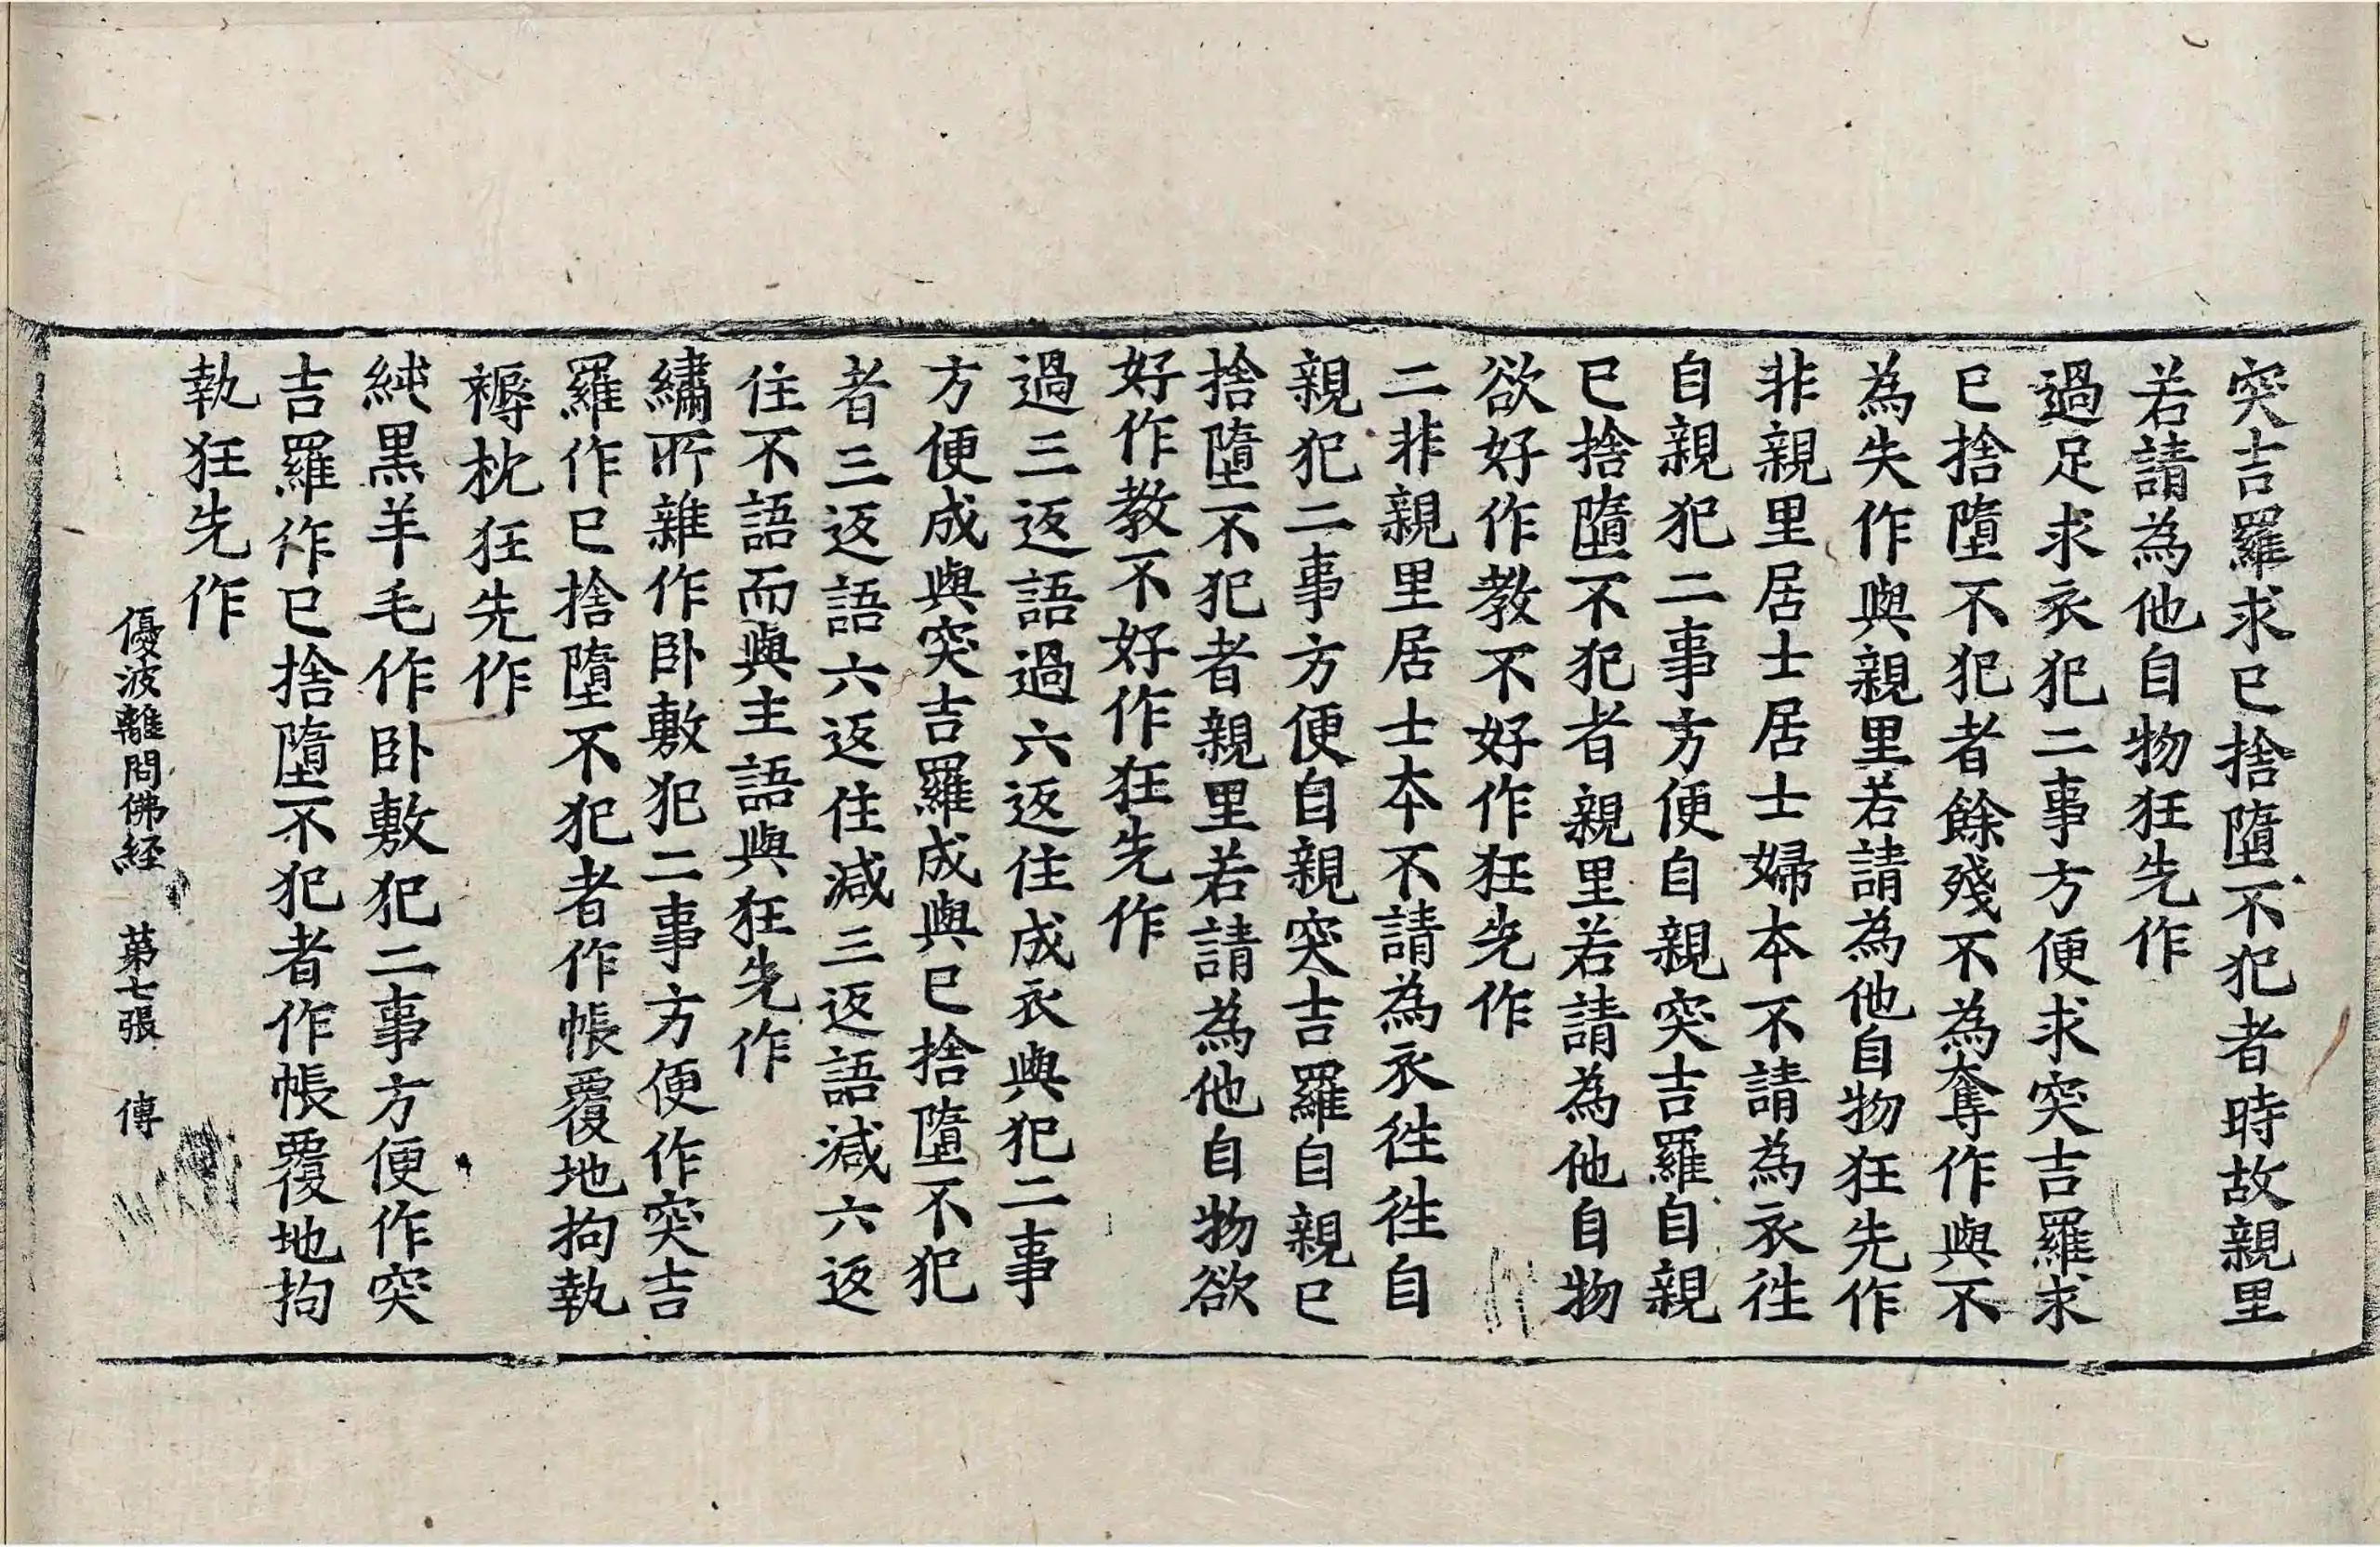 突吉羅求已捨墮不犯者時故親里
若請為他自物狂先作
過足求衣犯二事方便求突吉羅求
已捨墮不犯者餘殘不為奪作與不
為失作與親里若請為他自物狂先作
非親里居士居士婦本不請為衣徃
自親犯二事方便自親突吉羅自親
已捨墮不犯者親里若請為他自物
欲好作教不好作狂先作
二非親里居士本不請為衣徃徃自
親犯二事方便自親突吉羅自親已
捨墮不犯者親里若請為他自物欲
好作教不好作狂先作
過三返語過六返住成衣與犯二事
方便成與突吉羅成與已捨墮不犯
者三返語六返住減三返語減六返
住不語而與主語與狂先作
繡所雜作卧敷犯二事方便作突吉
羅作已捨墮不犯者作帳覆地拘執
褥枕狂先作
純黒羊毛作卧敷犯二事方便作突
吉羅作已捨墮不犯者作帳覆地拘
執狂先作
優波離問佛経 苐七張 傳